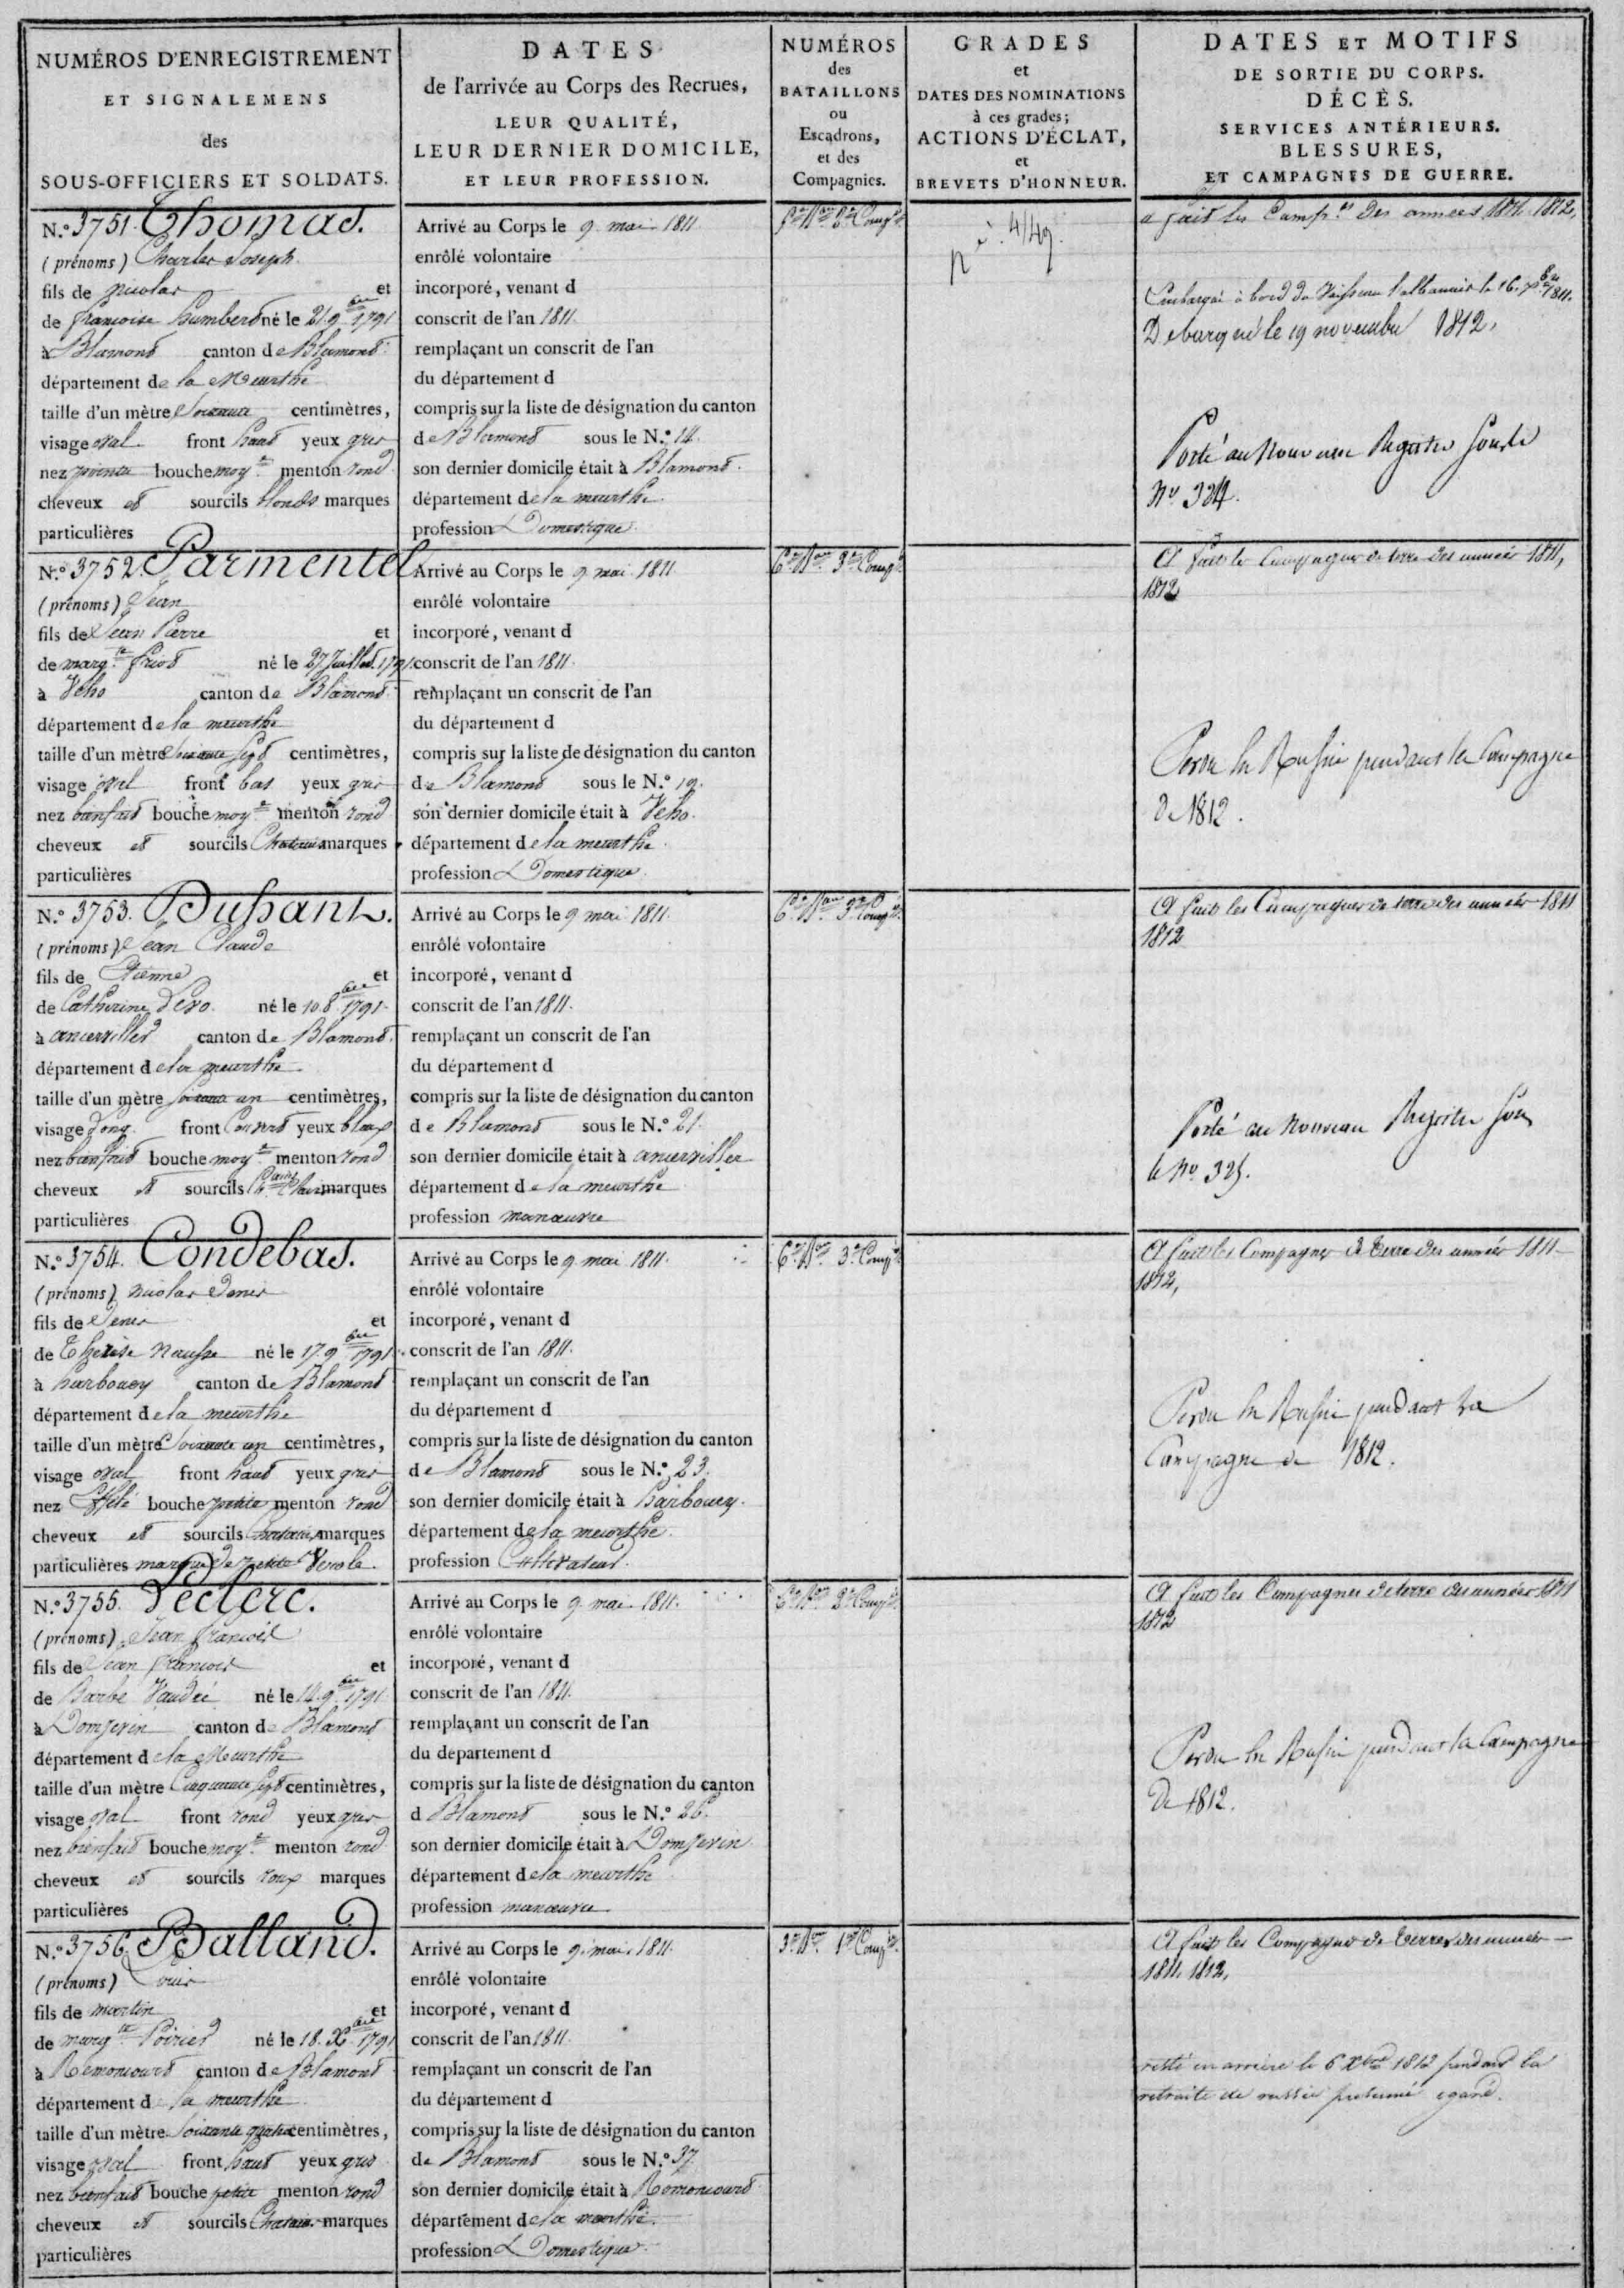 NUMÉROS D'ENREGISTREMENT
ET SIGNALEMENS
des
SOUS-OFFICIERS ET SOLDATS.
DATES
de l'arrivée au Corps des Recrues,
LEUR QUALITÉ,
LEUR DERNIER DOMICILE,
ET LEUR PROFESSION.
NUMÉROS
des
BATAILLONS
ou
Escadrons,
et des
Compagnies.
GRADES
et
DATES DES NOMINATIONS
à ces grades;
ACTIONS D'ÉCLAT,
et
BREVETS D'HONNEUR.
DATES ET MOTIFS
DE SORTIE DU CORPS.
DÉCÈS.
SERVICES ANTÉRIEURS.
BLESSURES,
ET CAMPAGNES DE GUERRE.
N.º 3751. Thomas.
(prénoms) Charles Joseph
fils de nicolas et
de francoise humbert né le 21 9.bre 1791
à Blamont canton de Blamont
département de la Meurthe
taille d'un mètre Soixante centimètres,
visage oval front haut yeux gris
nez pointu bouche moy.e menton rond
cheveux et sourcils blonds marques
particulières
Arrivé au Corps le 9 mai 1811.
enrôlé volontaire
incorporé, venant d
conscrit de l'an 1811.
remplaçant un conscrit de l'an
du département d
compris sur la liste de désignation du canton
de Blamont sous le N.º 14.
son dernier domicile était à Blamont.
département de la meurthe
profession Domestique.
4/49.
a fait les Camp.es des années 1811. 1812,
Embarqué à bord du Vaisseau l'albanais le 16. 7.bre 1811.
Debarqué le 19 novembre 1812,
Porté au Nouveau Registre sous le
N.º 324.
N.º 3752. Parmentel
(prénoms) Jean
fils de Jean Pierre et
de marg.te friot né le 27 Juillet 1791.
à Veho canton de Blamont
département de la meurthe
taille d'un mètre Soixante sept centimètres,
visage oval front bas yeux gris
nez bienfait bouche moy.e menton rond
cheveux et sourcils Chatains marques
particulières
Arrivé au Corps le 9 mai 1811
enrôlé volontaire
incorporé, venant d
conscrit de l'an 1811.
remplaçant un conscrit de l'an
du département d
compris sur la liste de désignation du canton
de Blamont sous le N.º 19.
son dernier domicile était à Veho.
département de la meurthe
profession Domestique.
6.e B.on 3.e Comp.ie
A fait les Campagnes de terre des années 1811,
1812
Perdu en Russie pendant la Campagne
de 1812.
N.º 3753. Dussant.
(prénoms) Jean Claude
fils de Etienne et
de Catherine né le 10 8.bre 1791.
à ancerviller canton de Blamont.
département de la meurthe
taille d'un mètre soixante un centimètres,
visage long front Couvert yeux bleux
nez bienfait bouche moy.e menton rond
cheveux et sourcils marques
particulières
Arrivé au Corps le 9 mai 1811.
enrôlé volontaire
incorporé, venant d
conscrit de l'an 1811.
remplaçant un conscrit de l'an
du département d
compris sur la liste de désignation du canton
de Blamont sous le N.º 21.
son dernier domicile était à ancerviller
département de la meurthe
profession manœuvre
6.e B.on 3.e Comp.ie
A fait les Campagnes de terre des années 1811
1812
Porté au Nouveau Registre sous
le N.º 325.
N.º 3754. Condebas.
(prénoms) nicolas Denis
fils de Denis et
de Thérèse Nausse né le 17. 9.bre 1791.
à harbouey canton de Blamont
département de la meurthe
taille d'un mètre Soixante un centimètres,
visage oval front haut yeux gris
nez Effilé bouche petite menton rond
cheveux et sourcils Chatains marques
particulières marqué de petite Verole
Arrivé au Corps le 9 mai 1811.
enrôlé volontaire
incorporé, venant d
conscrit de l'an 1811.
remplaçant un conscrit de l'an
du département d
compris sur la liste de désignation du canton
de Blamont sous le N.º 23.
son dernier domicile était à harbouey.
département de la meurthe
profession Cultivateur.
6.e B.on 3.e Comp.ie
A fait les Campagnes de terre des années 1811
1812,
Perdu en Russie pendant la
Campagne de 1812.
N.º 3755. Leclerc.
(prénoms) Jean francois
fils de Jean francois et
de Barbe Vaudré né le 14. 9.bre 1791
à Domjevin canton de Blamont
département de la Meurthe
taille d'un mètre Cinquante sept centimètres,
visage oval front rond yeux gris
nez bienfait bouche moy.e menton rond
cheveux et sourcils roux marques
particulières
Arrivé au Corps le 9 mai 1811.
enrôlé volontaire
incorporé, venant d
conscrit de l'an 1811.
remplaçant un conscrit de l'an
du département d
compris sur la liste de désignation du canton
d Blamont sous le N.º 26.
son dernier domicile était à Domjevin
département de la meurthe
profession manœuvre
6.e B.on 2.e Comp.ie
A fait les Campagnes de terre des années 1811
1812
Perdu en Russie pendant la Campagne
de 1812.
N.º 3756. Balland.
(prénoms) Louis
fils de martin et
de marg.te Poirier né le 18. X.bre 1791
à Remoncourt canton de Blamont
département de la meurthe
taille d'un mètre Soixante quatre centimètres,
visage oval front haut yeux gris
nez bienfait bouche petite menton rond
cheveux et sourcils Chatains marques
particulières
Arrivé au Corps le 9 mai 1811.
enrôlé volontaire
incorporé, venant d
conscrit de l'an 1811.
remplaçant un conscrit de l'an
du département d
compris sur la liste de désignation du canton
de Blamont sous le N.º 37
son dernier domicile était à Remoncourt
département de la meurthe.
profession Domestique.
3.e B.on 1.re Comp.ie
A fait les Campagnes de terres des années
1811. 1812,
resté en arrière le 6 Xbre 1812 pendant la
retraite de russie présumé égaré.